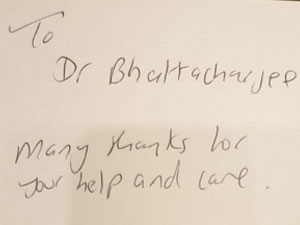 To
Dr Bhattacharjee
Many thanks for
your help and care.